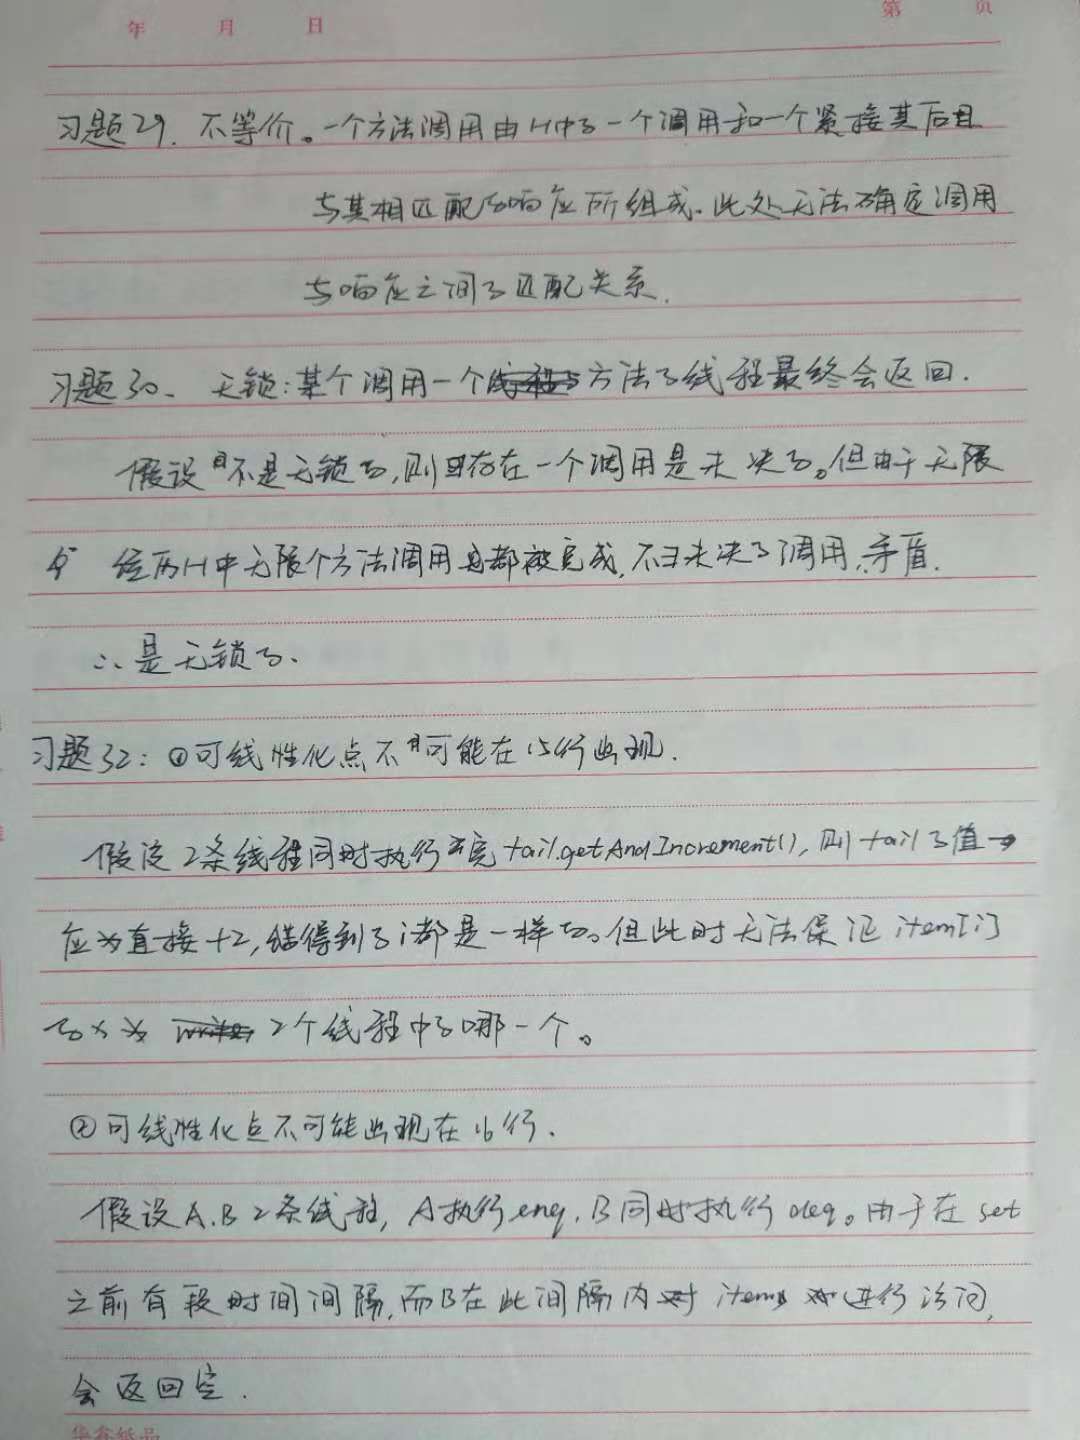 年 月 日
第 页
习题29. 不等价。一个方法调用由H中的一个调用和一个紧接其后且
与其相匹配的响应所组成.此处无法确定调用
与响应之间的匹配关系.
习题30、 无锁:某个调用一个方法的线程最终会返回.
假设不是无锁的,则存在一个调用是未决的。但由于无限
经历H中无限个方法调用都被完成,不∃未决的调用,矛盾.
∴是无锁的.
习题32: ①可线性化点不可能在15行出现.
假设2条线程同时执行完tail.getAndIncrement(),则tail的值
应为直接+2,得到的i都是一样的。但此时无法保证item[i]
的x为 2个线程中的哪一个。
②可线性化点不可能出现在16行.
假设A.B2条线程,A执行enq.B同时执行deq。由于在set
之前有段时间间隔,而B在此间隔内对items进行访问,
会返回空.
华鑫纸品